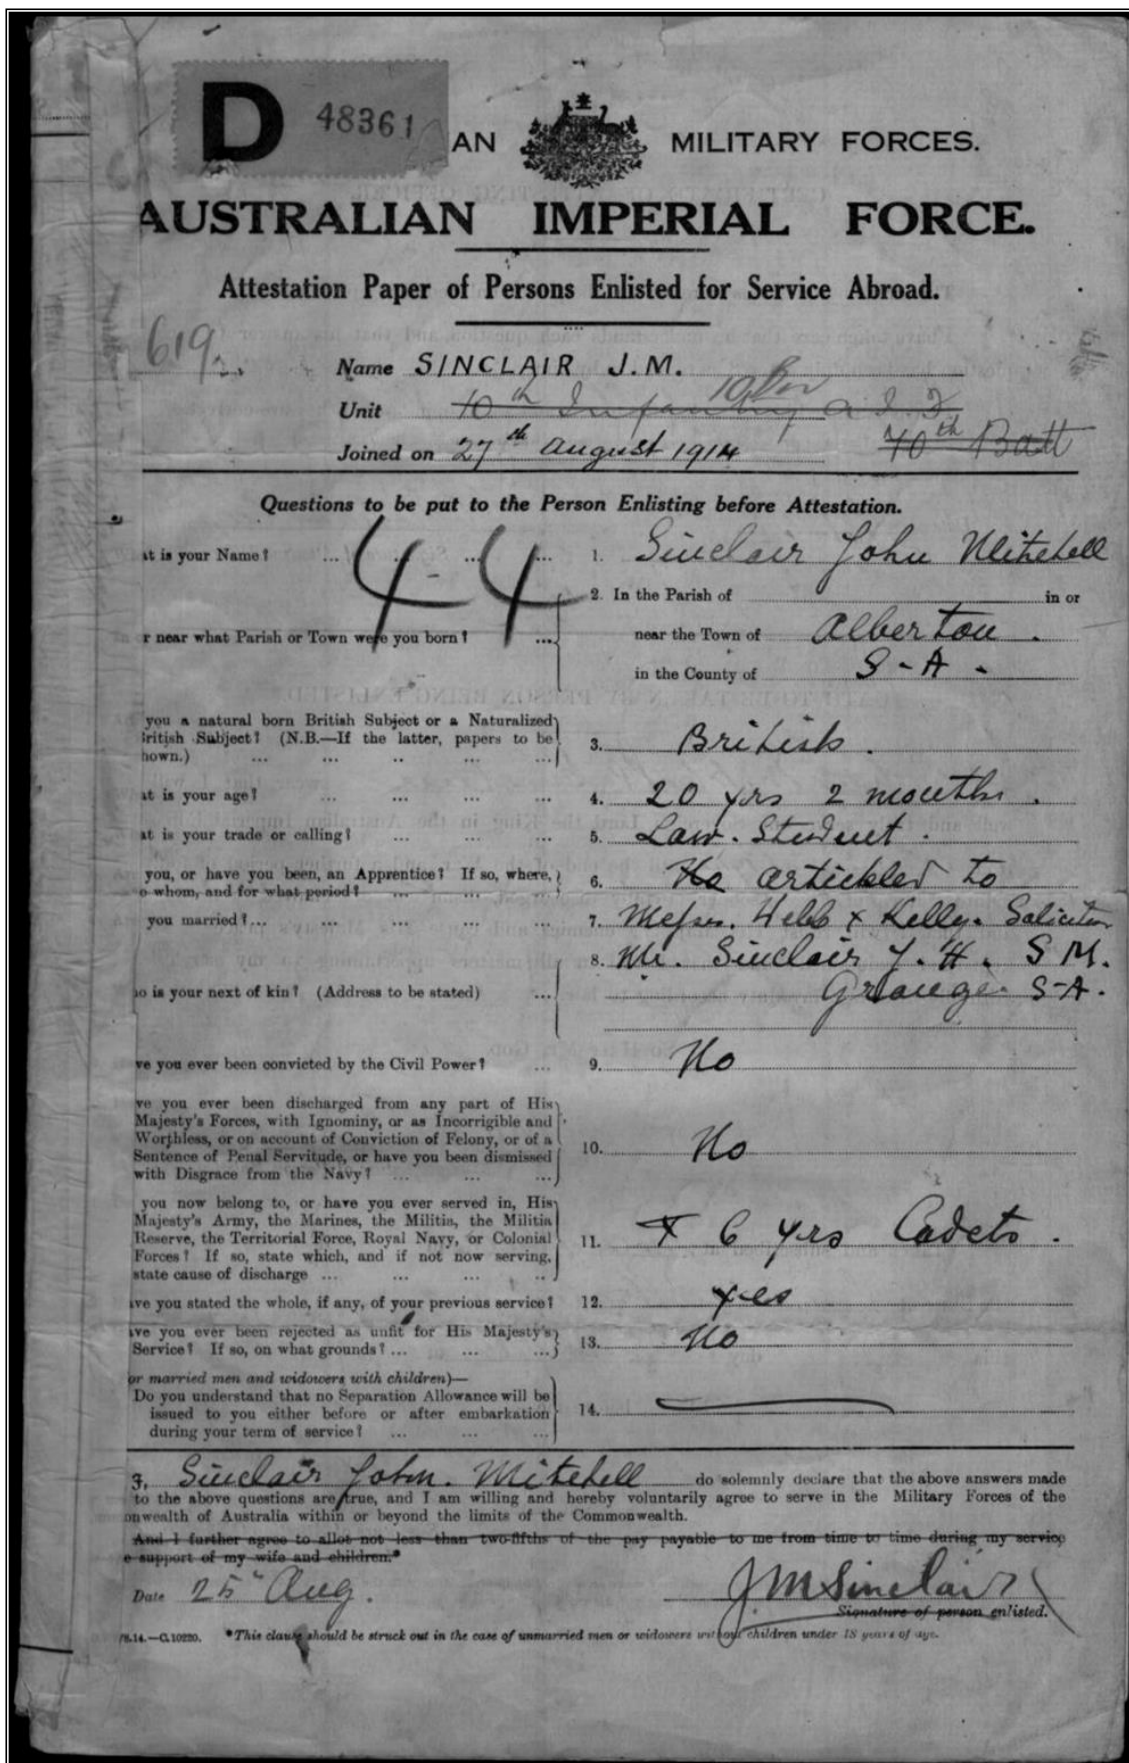 D 48361
AN MILITARY FORCES.
AUSTRALIAN IMPERIAL FORCE.
Attestation Paper of Persons Enlisted for Service Abroad.
619.
Name SINCLAIR J.M.
Unit 10th Infantry A.I.F.
Joined on 27th August 1914 10th Batt
Questions to be put to the Person Enlisting before Attestation.
at is your Name? ... ... ... 1. Sinclair John Mitchell
4-4
2. In the Parish of in or
r near what Parish or Town were you born? ... near the Town of Alberton.
in the County of S-A-
you a natural born British Subject or a Naturalized
British Subject? (N.B.—If the latter, papers to be 3. British.
hown.) ... ... .. ... ...
at is your age? ... ... ... ... 4. 20 yrs 2 months.
at is your trade or calling? ... ... ... 5. Law. Student.
you, or have you been, an Apprentice? If so, where, 6. No artickled to
o whom, and for what period? ... ... ...
you married?... ... ... ... ... 7. Messrs. Webb & Kelly. Solicitors
8. Mr. Sinclair J. H. S M.
o is your next of kin? (Address to be stated) ... Grange. S-A.
ve you ever been convicted by the Civil Power? ... 9. No
ve you ever been discharged from any part of His
Majesty's Forces, with Ignominy, or as Incorrigible and
Worthless, or on account of Conviction of Felony, or of a 10. No
Sentence of Penal Servitude, or have you been dismissed
with Disgrace from the Navy? ... ... ...
you now belong to, or have you ever served in, His
Majesty's Army, the Marines, the Militia, the Militia
Reserve, the Territorial Force, Royal Navy, or Colonial 11. 6 yrs Cadets.
Forces? If so, state which, and if not now serving,
state cause of discharge ... ... ... ..
ave you stated the whole, if any, of your previous service? 12. yes
ave you ever been rejected as unfit for His Majesty's 13. No
Service? If so, on what grounds? ... ... ...
or married men and widowers with children)—
Do you understand that no Separation Allowance will be
issued to you either before or after embarkation 14.
during your term of service? ... ... ...
I, Sinclair John. Mitchell do solemnly declare that the above answers made
to the above questions are true, and I am willing and hereby voluntarily agree to serve in the Military Forces of the
onwealth of Australia within or beyond the limits of the Commonwealth.
And I further agree to allot not less than two-fifths of the pay payable to me from time to time during my service
e support of my wife and children.*
Date 25 Aug. J.M Sinclair
Signature of person enlisted.
/8.14.—C.10220. *This clause should be struck out in the case of unmarried men or widowers without children under 18 years of age.